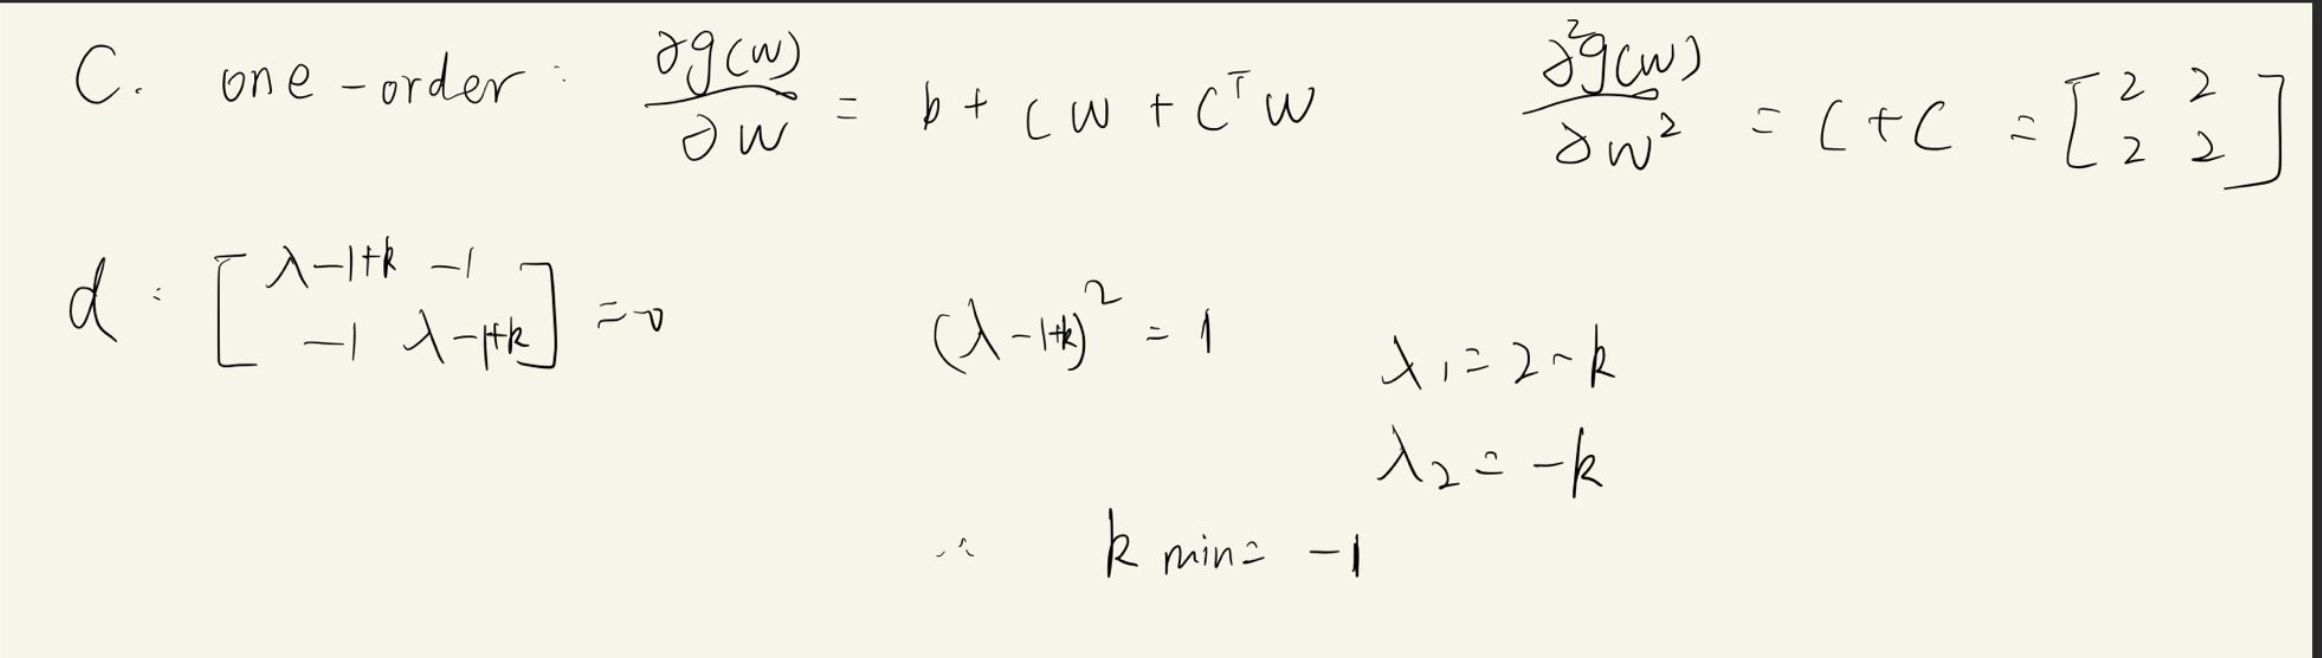 C. one-order: ∂g(w)/∂w = b + Cw + Cᵀw ∂²g(w)/∂w² = C+C = [2 2; 2 2]
d: [λ-1+k -1; -1 λ-1+k] = 0 (λ-1+k)² = 1 λ₁ = 2-k
λ₂ = -k
∴ k min = -1